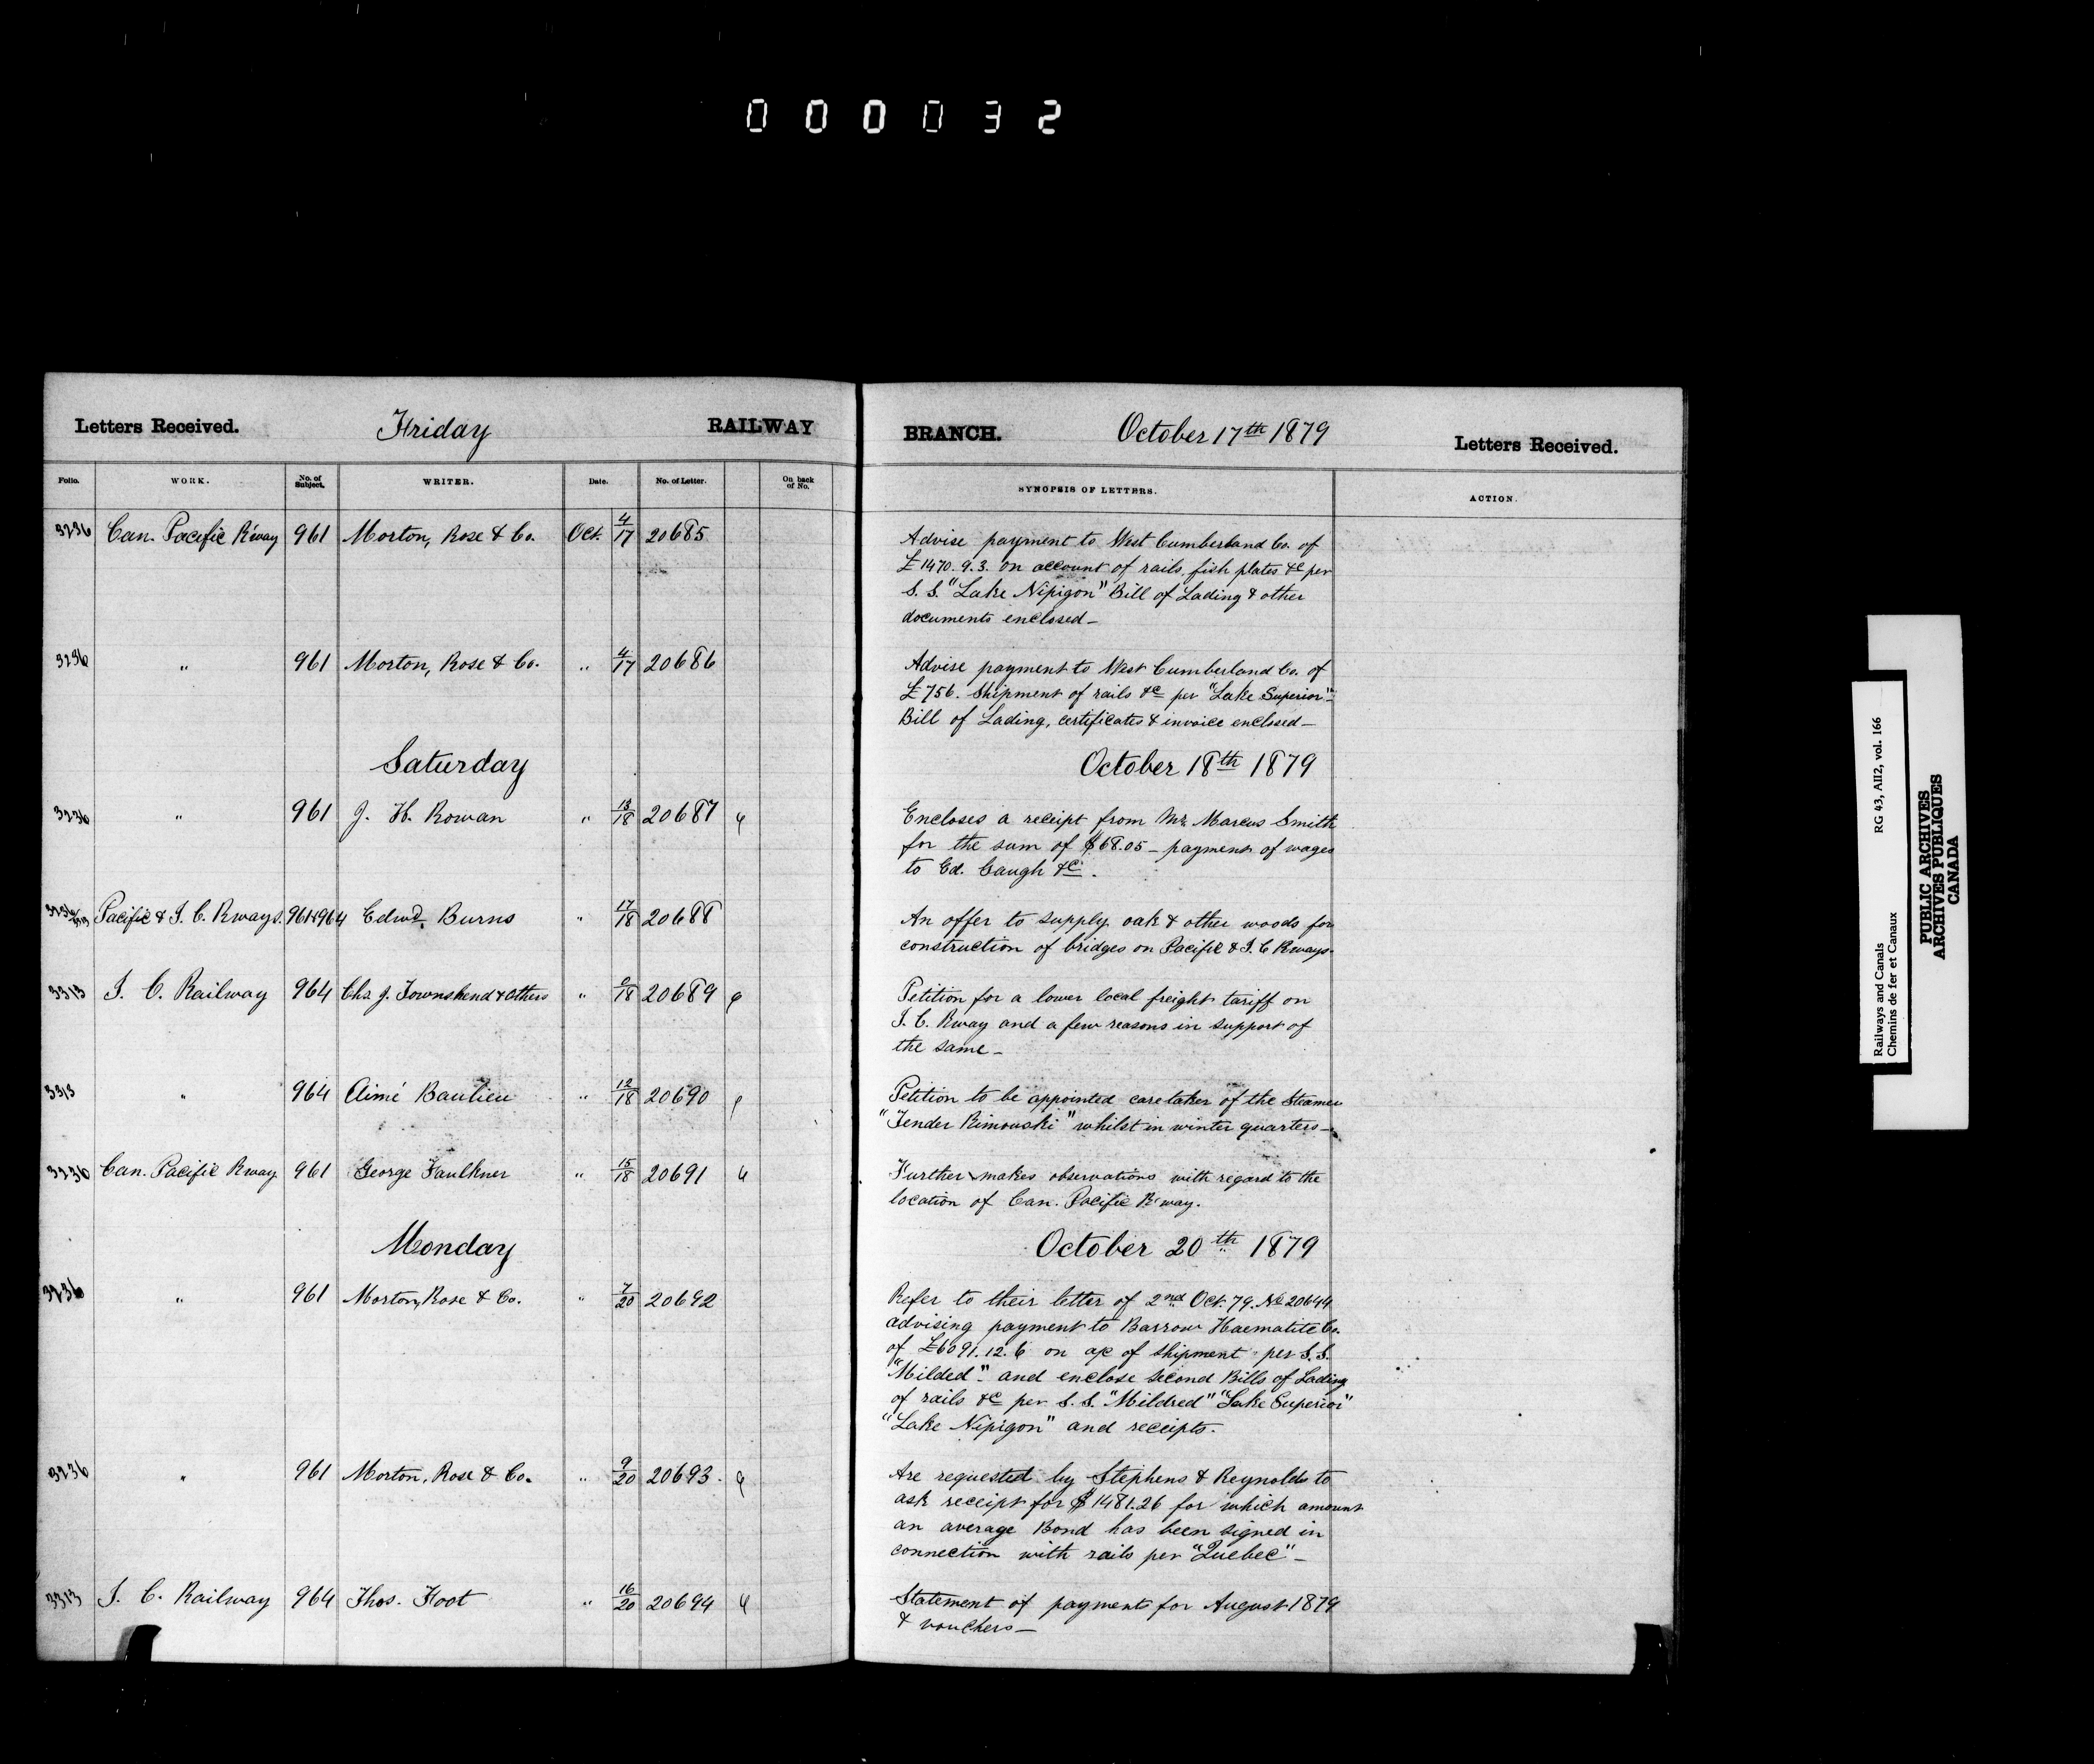 000032
Letters Received. Friday RAILWAY BRANCH. October 17th 1879 Letters Received.
Folio. WORK. No. of Subject. WRITER. Date. No. of Letter. On back of No. SYNOPSIS OF LETTERS. ACTION.
3236 Can. Pacific R'way 961 Morton, Rose & Co. Oct. 4/17 20685 Advise payment to West Cumberland Co. of
£1470.9.3. on account of rails, fish plates &c per
S.S. "Lake Nipigon" Bill of Lading & other
documents enclosed_
3236 " 961 Morton, Rose & Co. " 4/17 20686 Advise payment to West Cumberland Co. of
£756. Shipment of rails &c per "Lake Superior"_
Bill of Lading, certificates & invoice enclosed_
Saturday October 18th 1879
3236 " 961 J. H. Rowan " 13/18 20687 Encloses a receipt from Mr. Marcus Smith
for the sum of $68.05_ payment of wages
to Ed. Caugh &c.
3236/3313 Pacific & I. C. Rways. 961&964 Edwd. Burns " 17/18 20688 An offer to supply oak & other woods for
construction of bridges on Pacific & I. C Rways.
3313 I. C. Railway 964 Chs. J. Townshend & others " /18 20689 Petition for a lower local freight tariff on
I. C. Rway and a few reasons in support of
the same_
3313 " 964 Aimé Baulieu " 12/18 20690 Petition to be appointed caretaker of the Steamer
"Tender Rimouski" whilst in winter quarters_
3236 Can. Pacific Rway. 961 George Faulkner " 15/18 20691 Further makes observations with regard to the
location of Can. Pacific R'way.
Monday October 20th 1879
3236 " 961 Morton, Rose & Co. " 7/20 20692 Refer to their letter of 2nd Oct. 79. No 20644
advising payment to Barrow Haematite Co.
of £6091.12.6 on a/c of shipment per S.S.
"Milded" and enclose second Bills of Lading
of rails &c per S.S. "Mildred" "Lake Superior"
"Lake Nipigon" and receipts.
3236 " 961 Morton, Rose & Co. " 9/20 20693. Are requested by Stephens & Reynolds to
ask receipt for $1481.26 for which amount
an average Bond has been signed in
connection with rails per "Quebec"_
3313 I. C. Railway 964 Thos. Foot " 16/20 20694 Statement of payments for August 1879
& vouchers_
RG 43, AII2, vol. 166
Railways and Canals
Chemins de fer et Canaux
PUBLIC ARCHIVES
ARCHIVES PUBLIQUES
CANADA